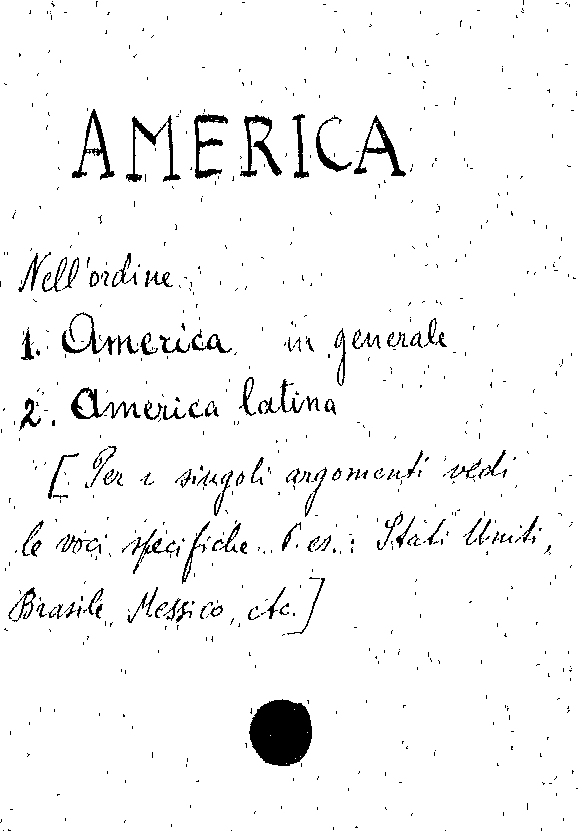 AMERICA
Nell'ordine
1. America in generale
2. America latina
[Per i singoli argomenti vedi
le voci specifiche. P. es.: Stati Uniti,
Brasile, Messico, etc.]